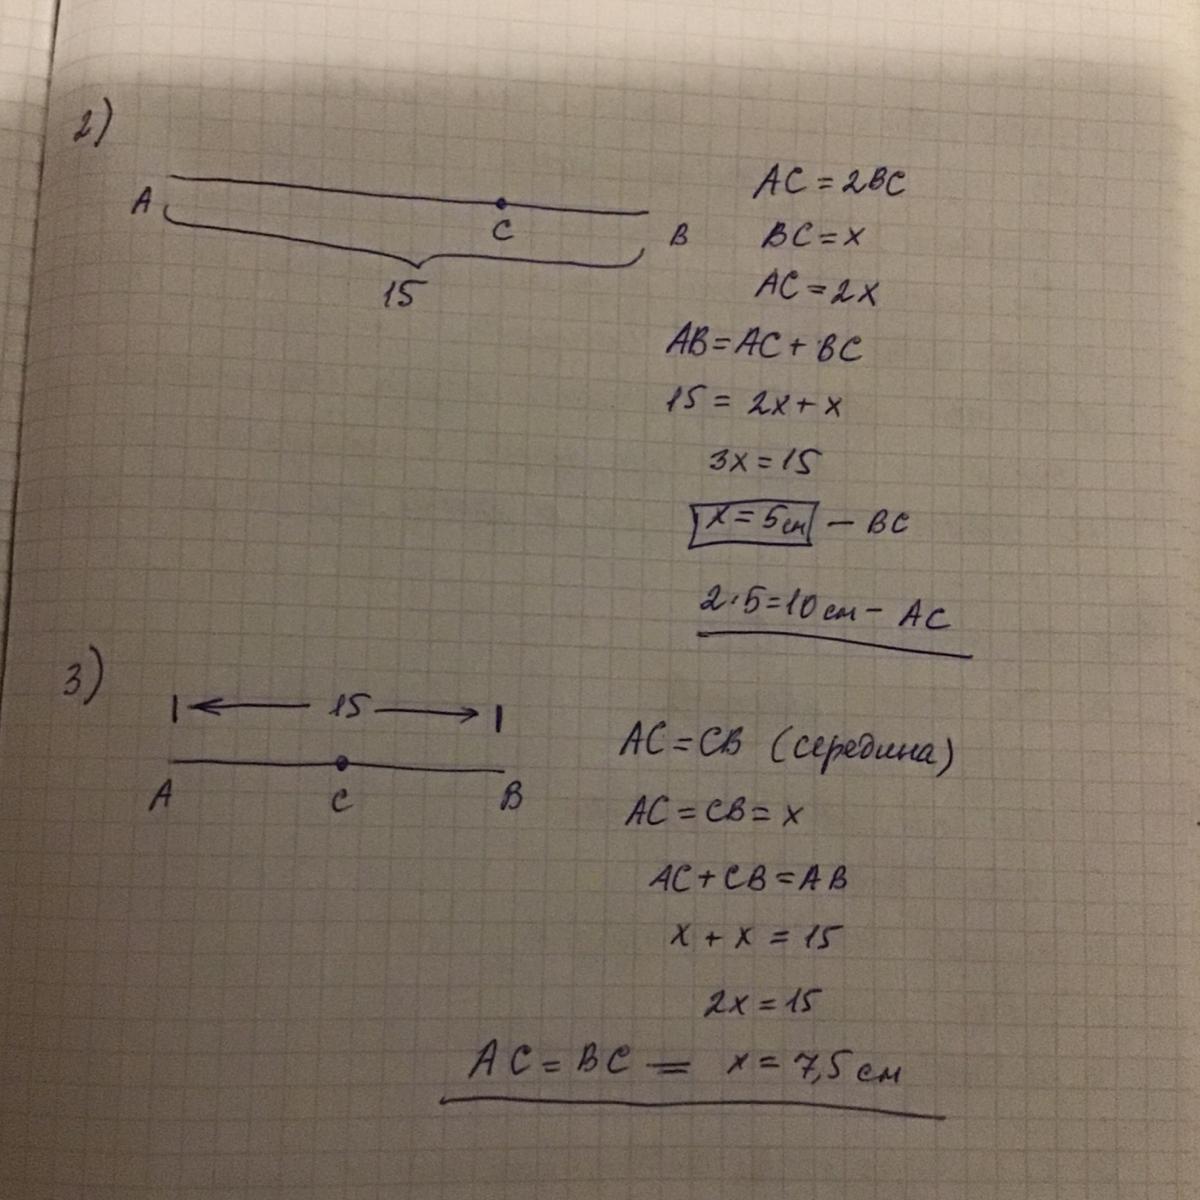 2)
A
C
B
15
AC = 2BC
BC = x
AC = 2x
AB = AC + BC
15 = 2x + x
3x = 15
x = 5см — BC
2·5=10см - AC
3)
15
A
C
B
AC = CB (середина)
AC = CB = x
AC + CB = AB
x + x = 15
2x = 15
AC = BC = x = 7,5 см